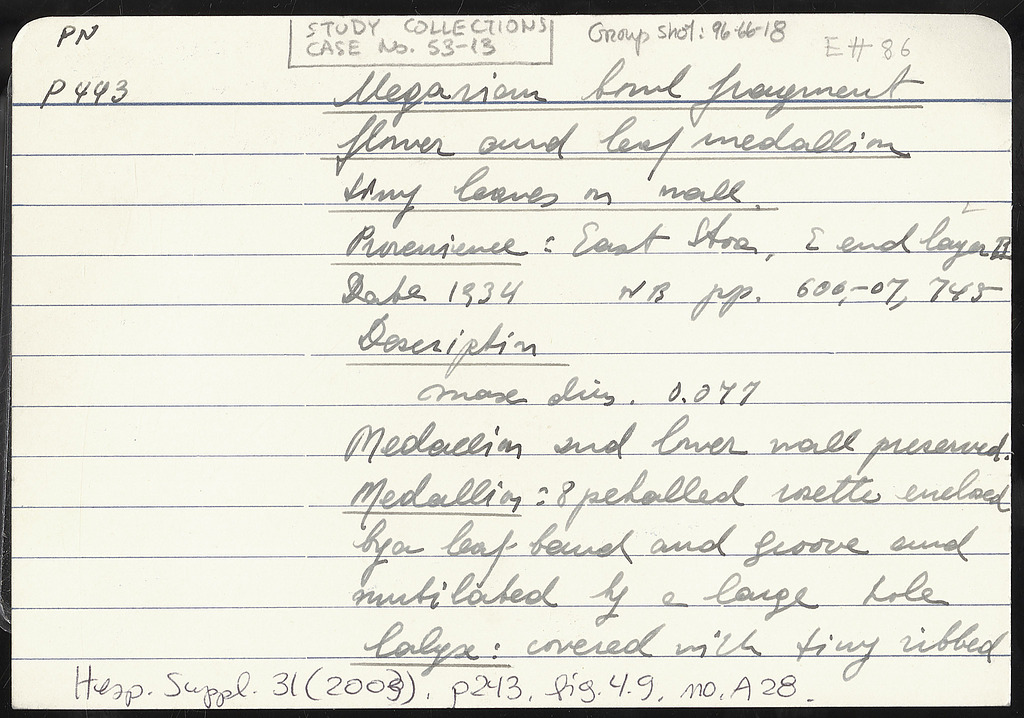 PN
STUDY COLLECTIONS
CASE No. 53-13
Group shot: 96-66-18
E# 86
P 443
Megarian bowl fragment
flower and leaf medallion
tiny leaves on wall.
Provenience : East Stoa, E end layer II
Date 1934 NB pp. 606,-07, 745
Description
max dim. 0.077
Medallion and lower wall preserved.
Medallion : 8 petalled rosette enclosed
by a leaf-band and groove and
mutilated by a large hole
Calyx : covered with tiny ribbed
Hesp. Suppl. 31 (2003), p243, fig. 4.9, no. A 28.